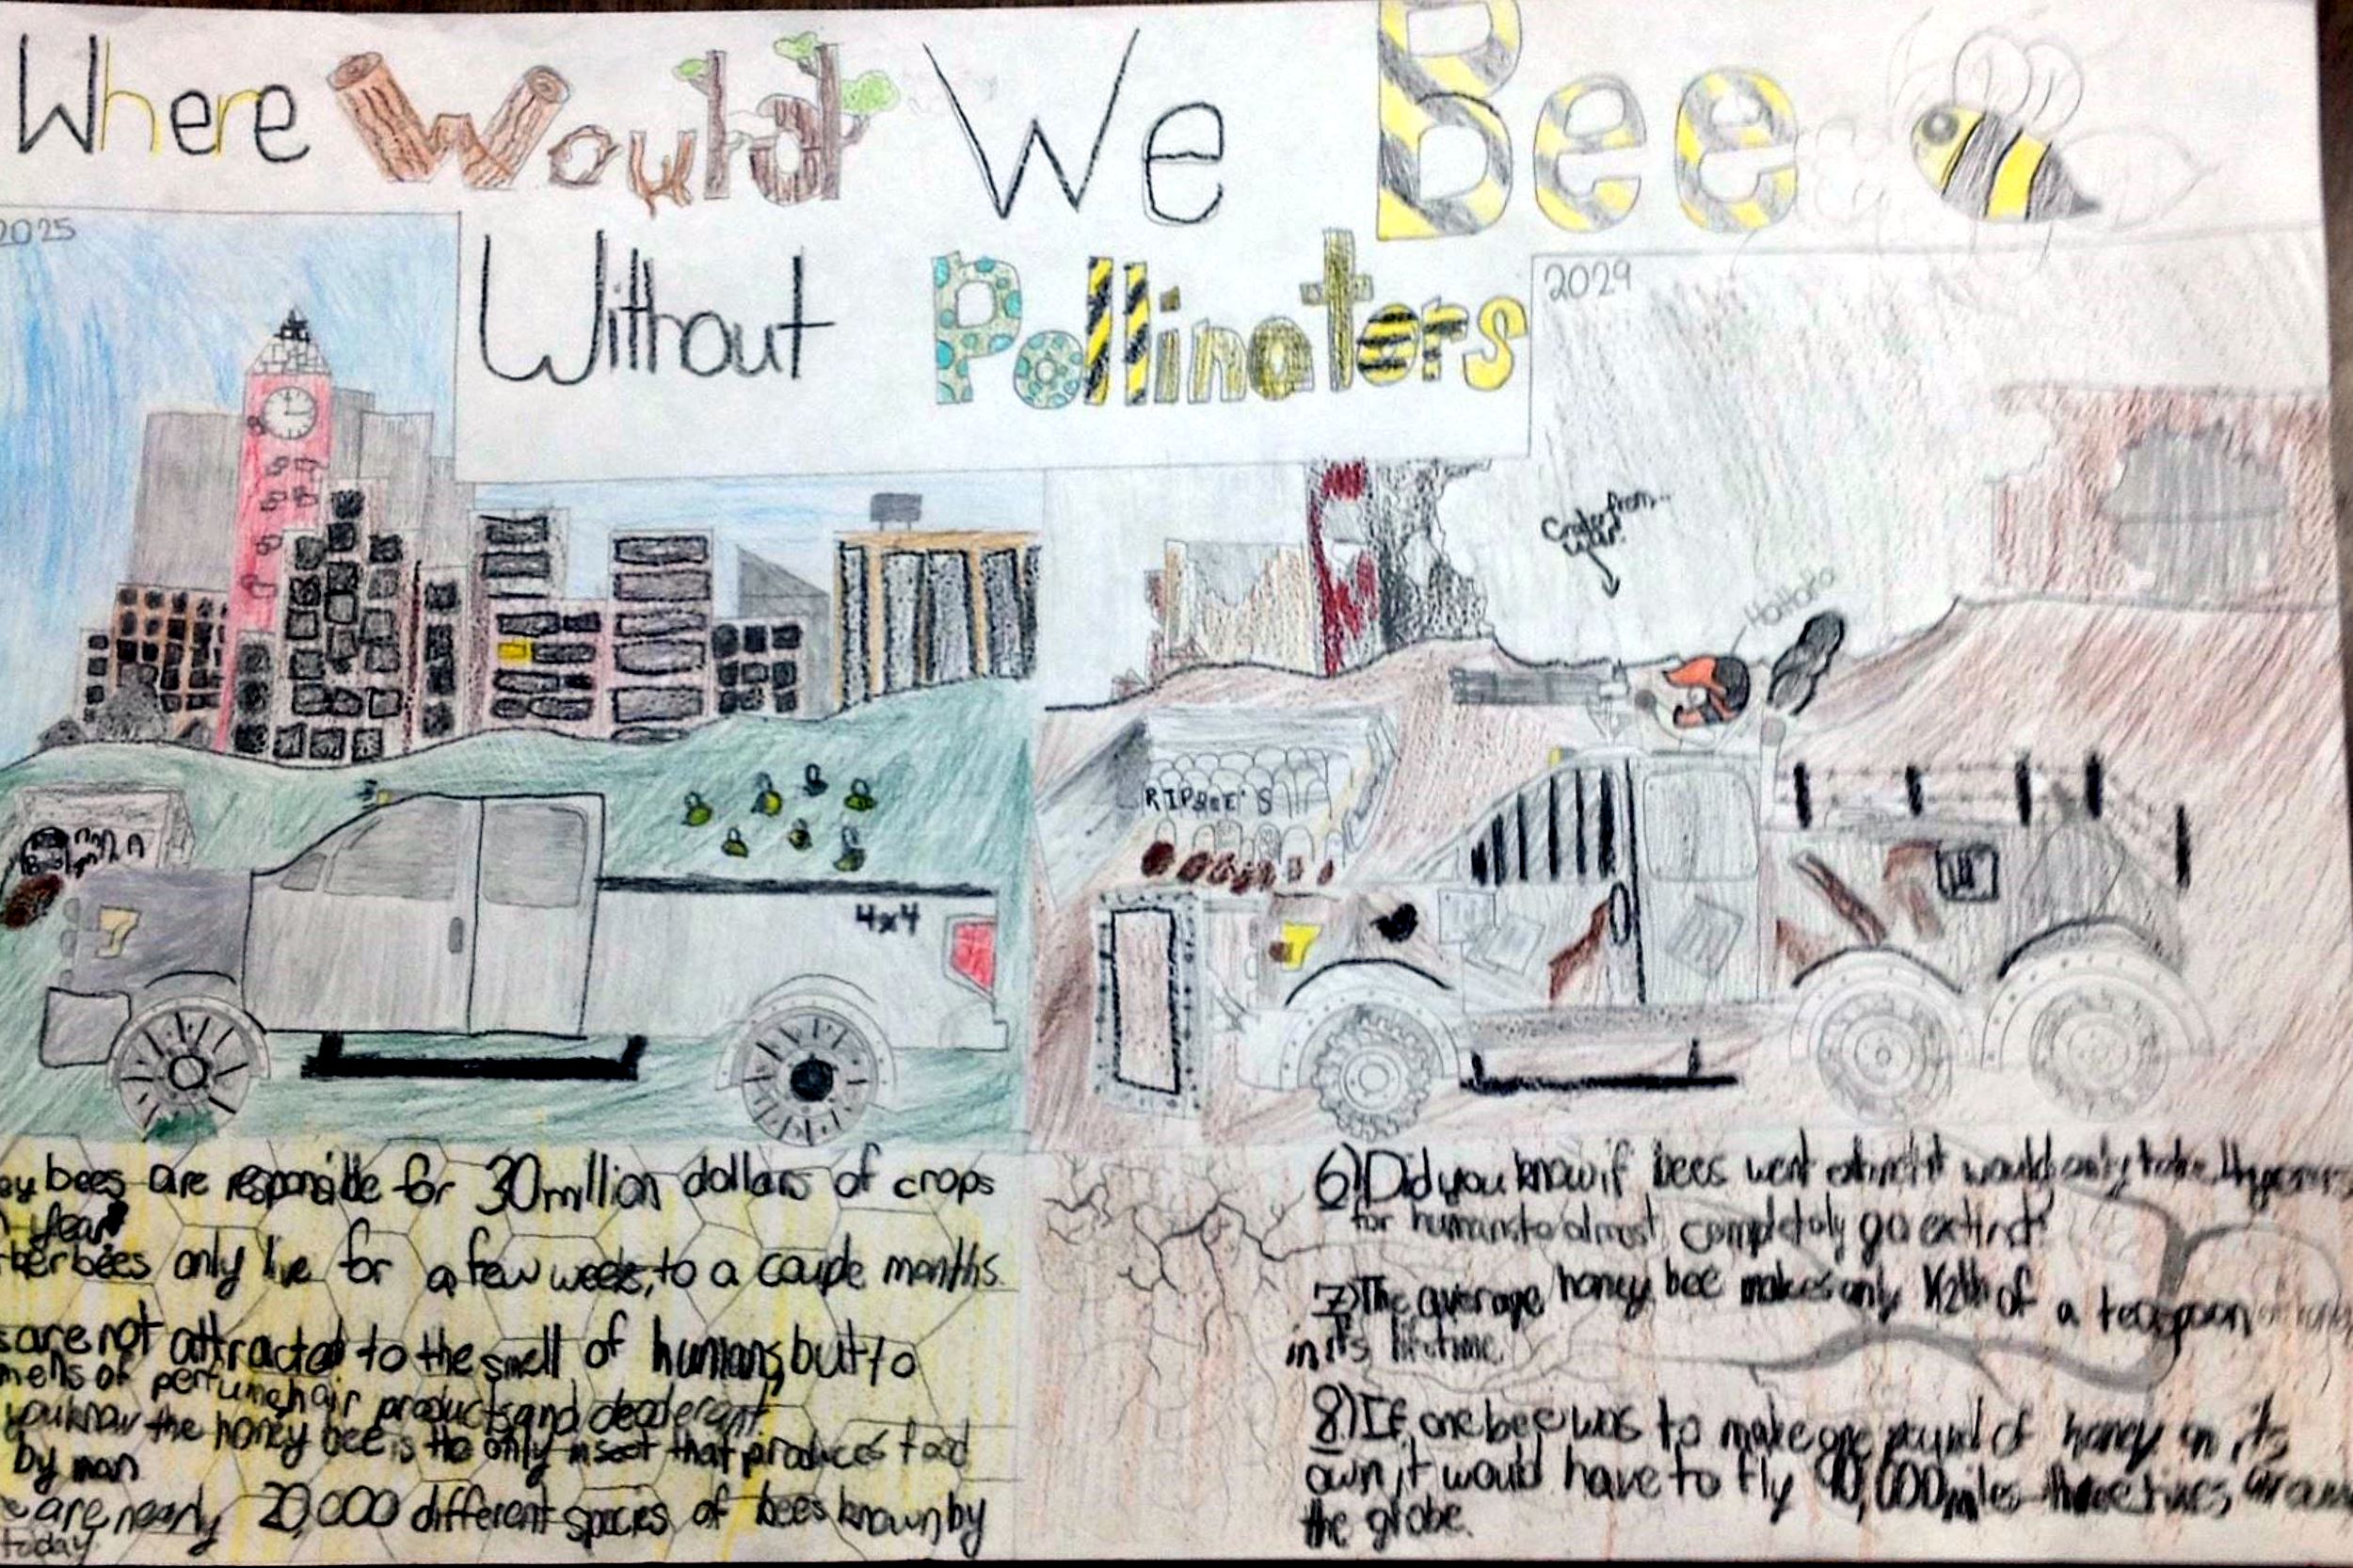 Where Would We Bee
Without Pollinators
2025
2029
Crater from..
war!
HaHaHa
RIP BEE'S
4x4
ey bees are responsible for 30 million dollars of crops
year
ter bees only live for a few weeks, to a couple months
s are not attracted to the smell of humans, but to
mells of perfume, hair products, and deoderant
you know the honey bee is the only insect that produces food
by man
e are nearly 20,000 different species of bees known by
today.
6) Did you know if bees went extinct it would only take 4 years
for humans to almost completely go extinct?
7) The average honey bee makes only 1/12th of a teaspoon
in its lifetime.
8) If one bee was to make one pound of honey on its
own, it would have to fly 90,000 miles three times around
the globe.